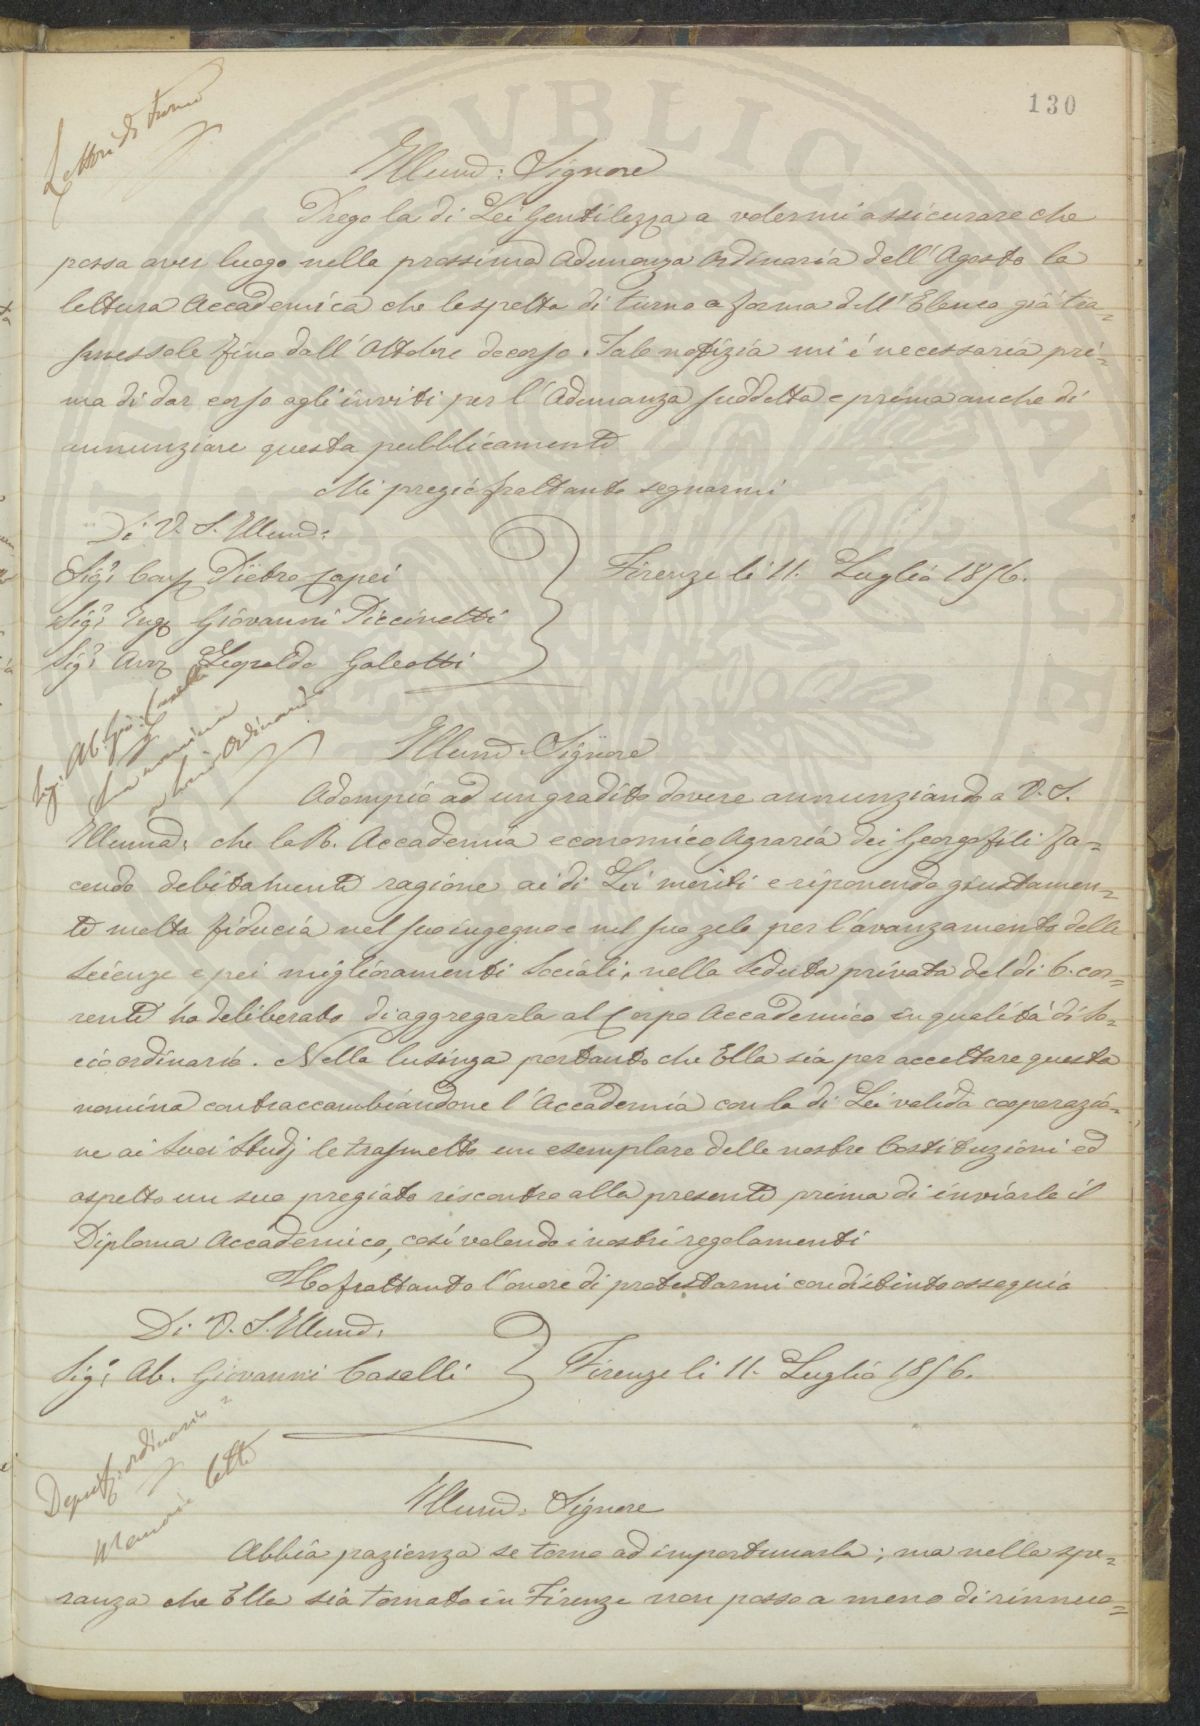 130
Lettori di turno
Illmo: Signore
Prego la di Lei Gentilezza a volermi assicurare che
possa aver luogo nella prossima adunanza ordinaria dell'Agosto la
lettura Accademica che le spetta di turno a forma dell'Elenco già tra=
smessole fino dall'Ottobre decorso. Tale notizia mi é necessaria pri=
ma di dar corso agli inviti per l'adunanza suddetta e prima anche di
annunziare questa pubblicamente
Mi pregio frattanto segnarmi
Di V. S. Illma:
Sigr Pietro Capei
Sigr Ing Giovanni Piccinetti
Sigr Avv Leopoldo Galeotti
Firenze li 11. Luglio 1856.
Sigr Ab. Gio: Caselli
Sua nomina
a Socio Ordinario
Illmo. Signore
Adempio ad un gradito dovere annunziando a V. S.
Illuma: che la R. Accademia economico Agraria dei Georgofili fa=
cendo debitamente ragione ai di Lei meriti e riponendo giustamen=
te molta fiducia nel suo ingegno e nel suo zelo per l'avanzamento delle
scienze e pei miglioramenti Sociali, nella Seduta privata del di 6. cor=
rente ha deliberato di aggregarla al Corpo Accademico in qualità di So=
cio ordinario. Nella lusinga pertanto che Ella sia per accettare questa
nomina contraccambiandone l'Accademia con la di Lei valida cooperazio=
ne ai suoi Studj le trasmetto un esemplare delle nostre Costituzioni ed
aspetto un suo pregiato riscontro alla presente prima di inviarle il
Diploma Accademico, così volendo i nostri regolamenti
Ho frattanto l'onore di protestarmi con distinto ossequio
Di V. S. Illma:
Sigr Ab. Giovanni Caselli
Firenze li 11. Luglio 1856.
ordinarie
Memorie lette
Illmo. Signore
Abbia pazienza se torno ad importunarla; ma nella spe=
ranza che Ella sia tornato in Firenze non posso a meno di rinnuo=